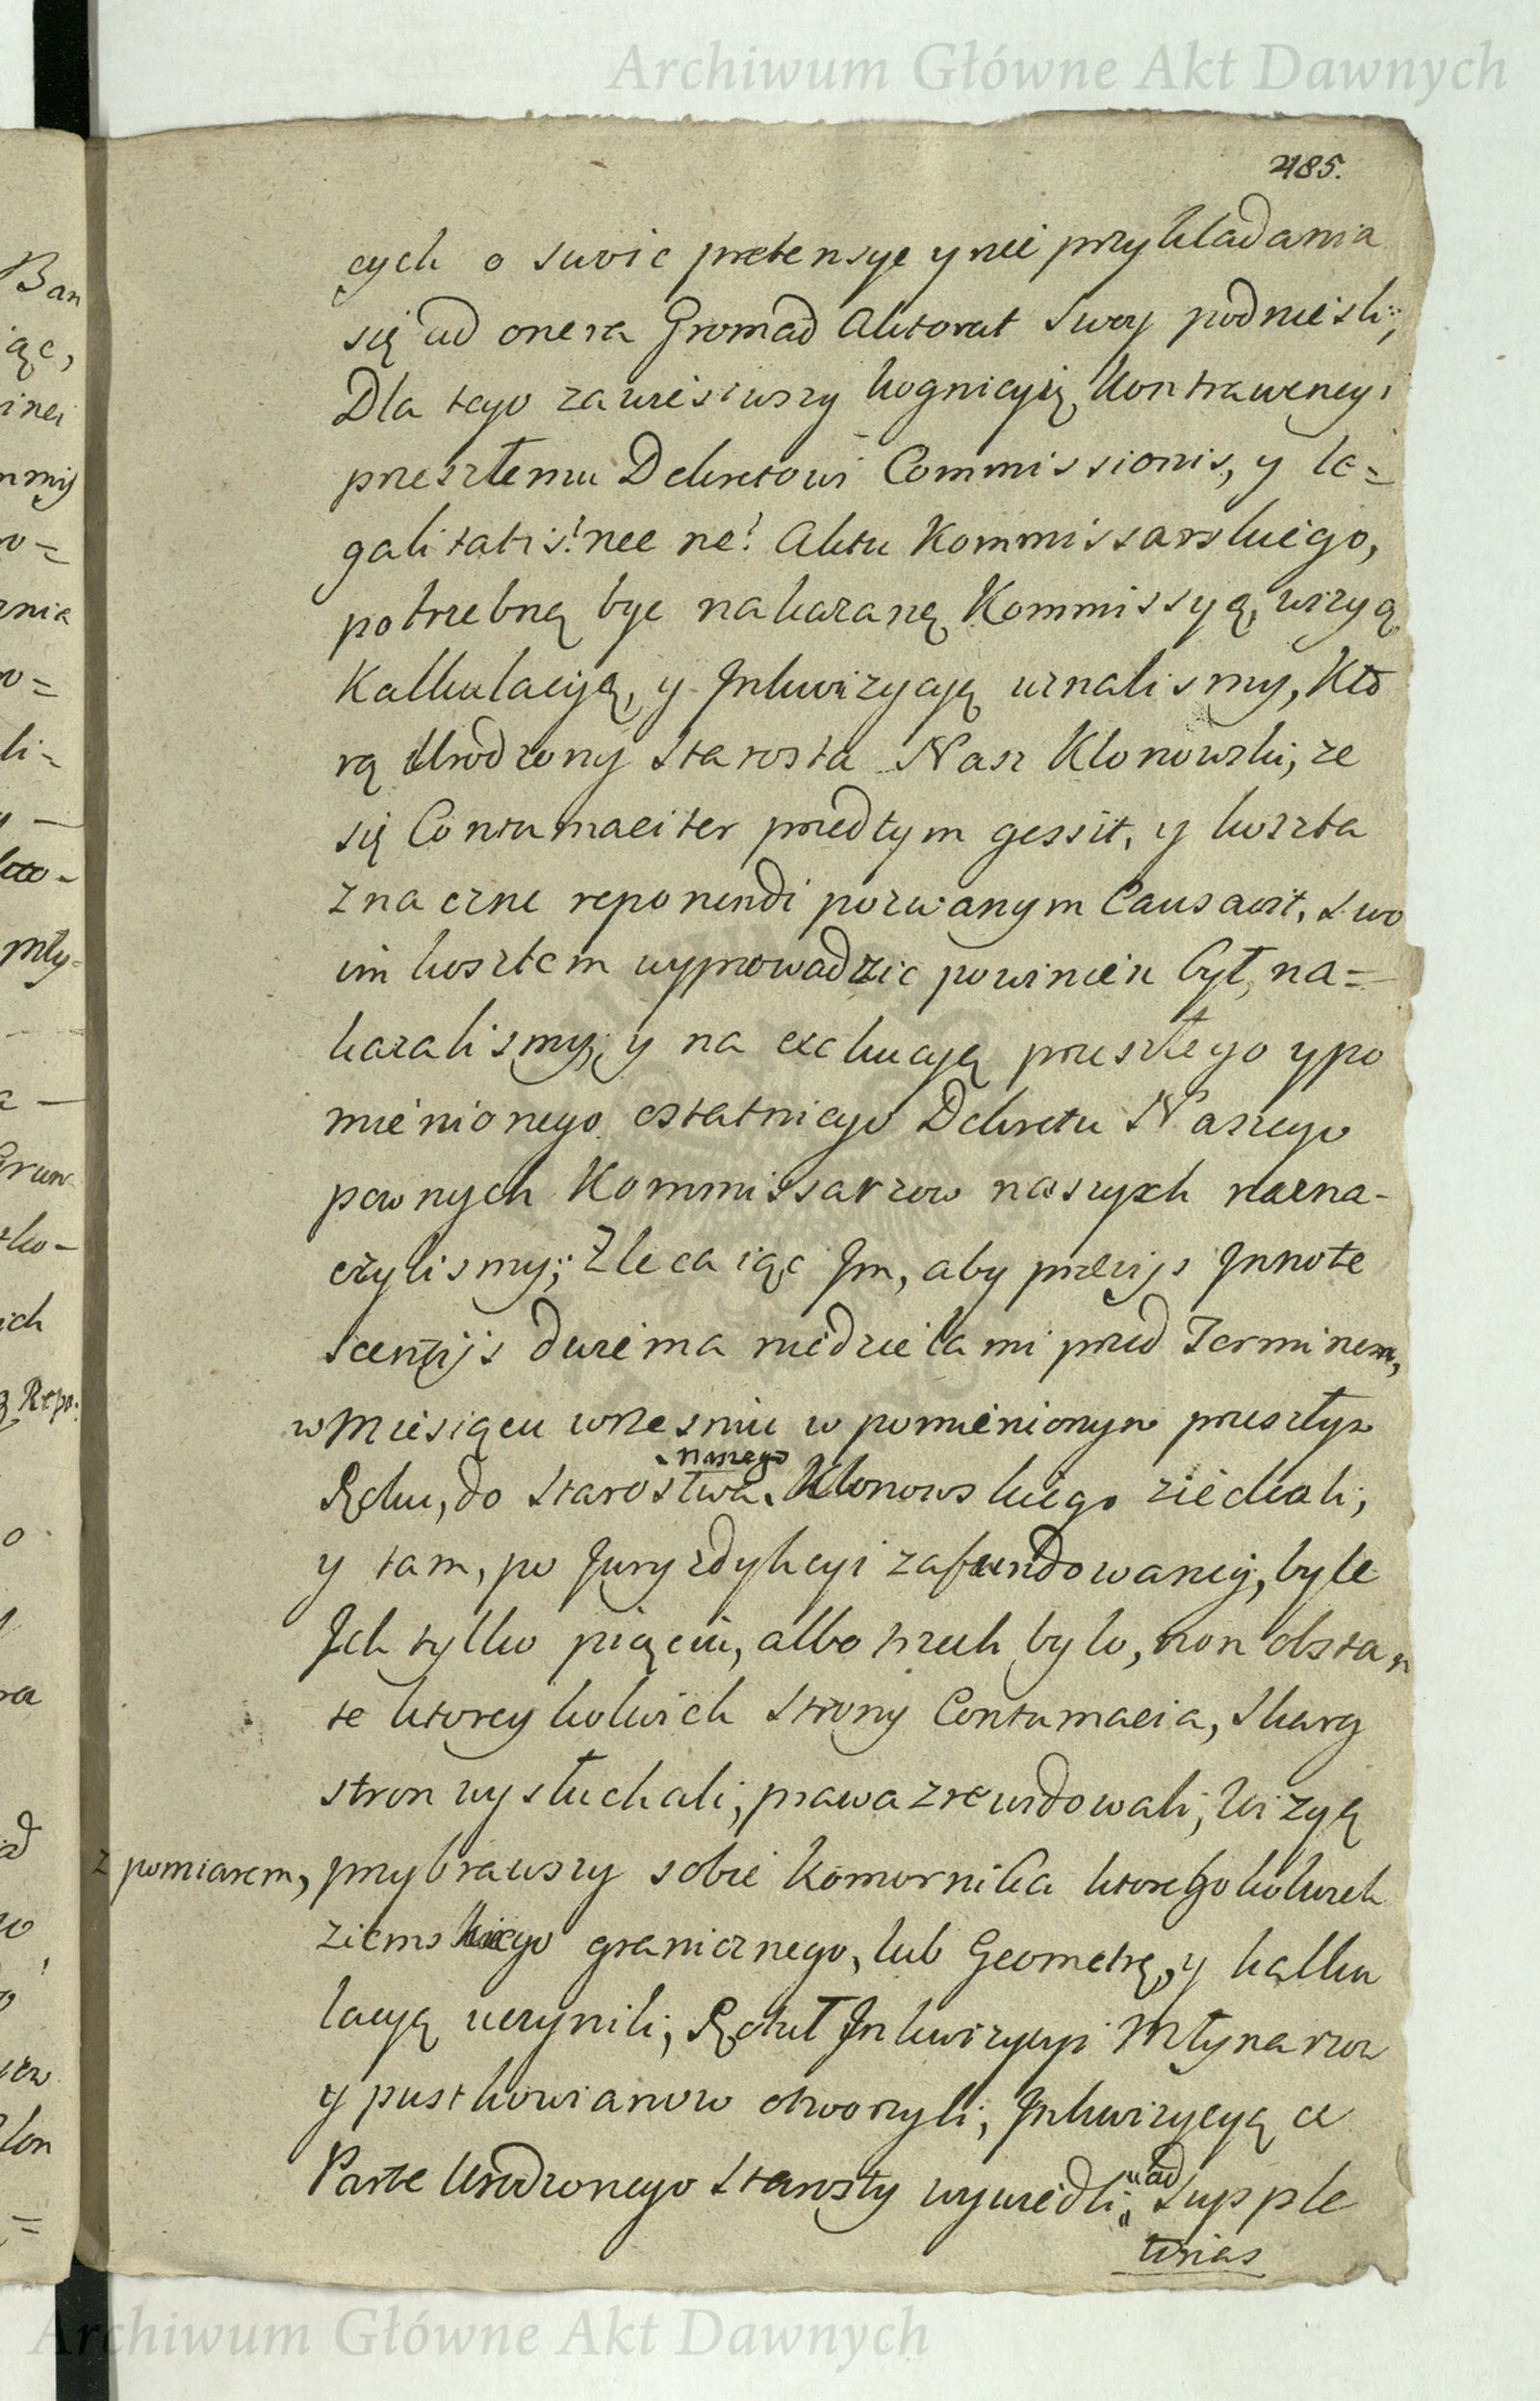 Archiwum Główne Akt Dawnych
485.
cych o swoie pretensye y nie przykładania
się ad onera Gromad Aktorat swoy podnieśli;
Dla tego zawiesiwszy kognicyią Kontrawencyi
przeszłemu Dekretowi Commissionis, y le=
galitatis! nec ne! Aktu Kommissarskiego,
potrzebną byc nakazaną Kommissyą, wizyą
Kalkulacyią, y Inkwizycyą uznalismy, Kto
rą Urodzony Starosta Nasz Klonowski, ze
się Contumaciter przedtym gessit, y koszta
znaczne reponendi pozwanym Causavit, swo
im kosztem wyprowadzic powinien był, na=
kazalismy; y na exekucyą przeszłego y po
mienionego ostatniego Dekretu Naszego
pewnych Kommissarzow naszych nazna-
czylismy; Zlecaiąc Im, aby prævijs Innote
scentijs dwiema niedzielami przed Terminem,
w Miesiącu wrzesniu w pomienionym przeszłym
Roku, do Starostwa naszego Klonowskiego ziechali;
y tam, po Juryzdykcyi zafundowaney, byle
Ich tylko pięciu, albo trzech bylo, non obstan
te ktoreykolwiek Strony Contumacia, Skarg
stron wysłuchali; prawa zrewidowali; Wizyą
z pomiarem, przybrawszy sobie Komornika ktoregokolwiek
ziemskiego granicznego, lub Geometrę, y kalku
lacyą uczynili; Rotuł Inkwizycyi Młynarzow
y pustkowianow otworzyli; Inkwizycyą ex
Parte Urodzonego Starosty wywiedli; ad Supple
torias
Ban
iąc,
inei
mmis
ro=
znia
wo=
li-
y —
koo-
Mły-
a —
Grun
tko-
ich
z Repo:
o
ra
ad
zo
zon
=
Archiwum Główne Akt Dawnych